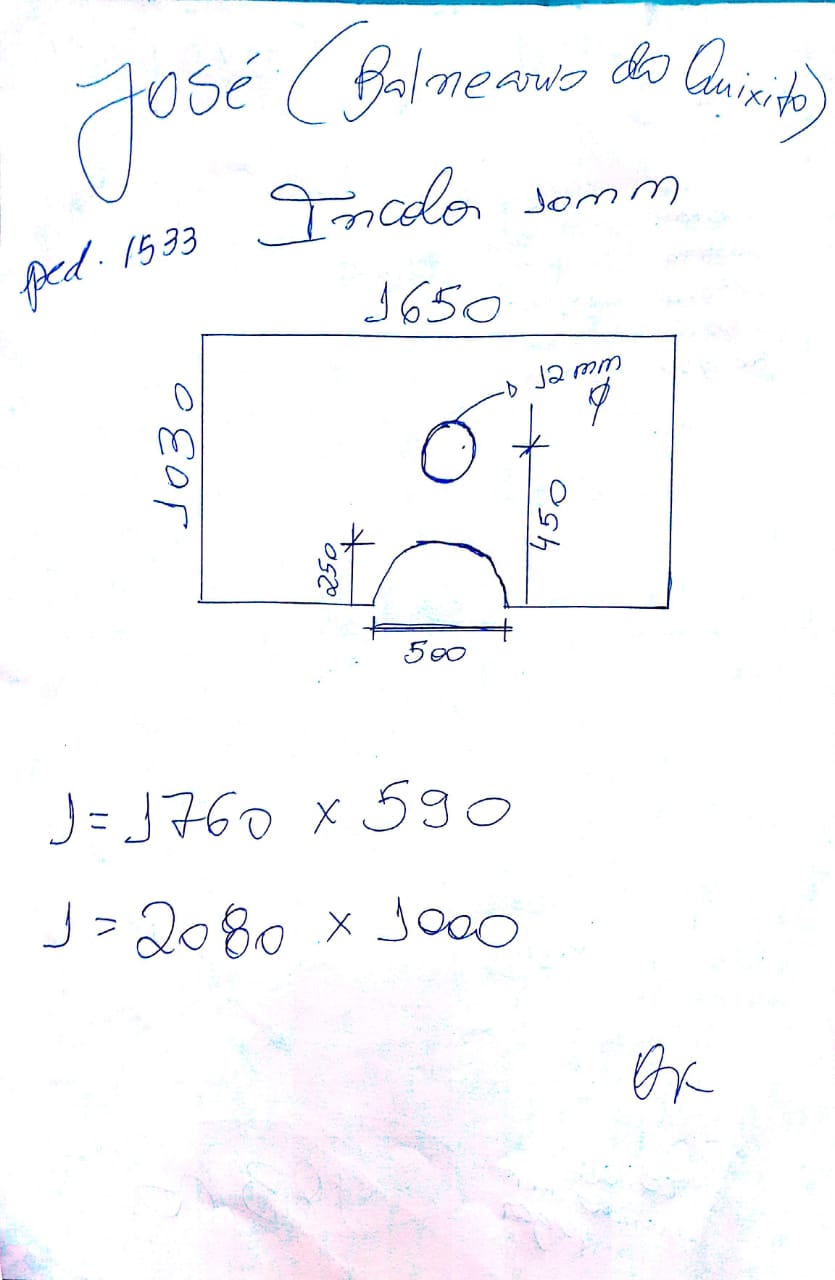 José (Balneario do Quixito)
ped. 1533 Incolor 10mm
1650
12 mm
Ø
1030
450
250
500
1 = 1760 x 590
1 = 2080 x 1000
OK